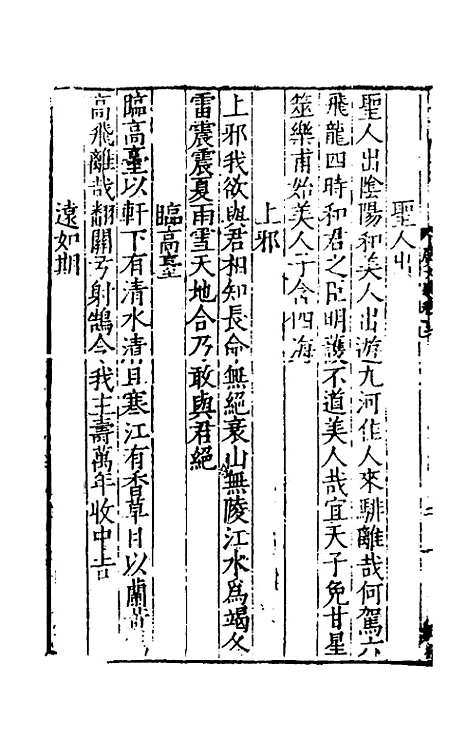 聖人出
聖人出陰陽和美人出遊九河佳人來騑離哉何駕六
飛龍四時和君之臣明護不道美人哉宜天子免甘星
筮樂甫始美人子含四海
上邪
上邪我欲與君相知長命無絕衰山無陵江水為竭冬
雷震震夏雨雪天地合乃敢與君絕
臨高臺
臨高臺以軒下有清水清且寒江有香草目以蘭
高飛離哉翻關弓射鵠令我主壽萬年收中吉
遠如期